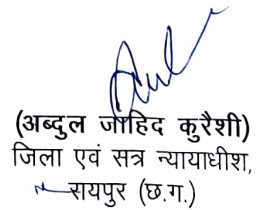 (अब्दुल जाहिद कुरैशी)
जिला एवं सत्र न्यायाधीश,
रायपुर (छ.ग.)